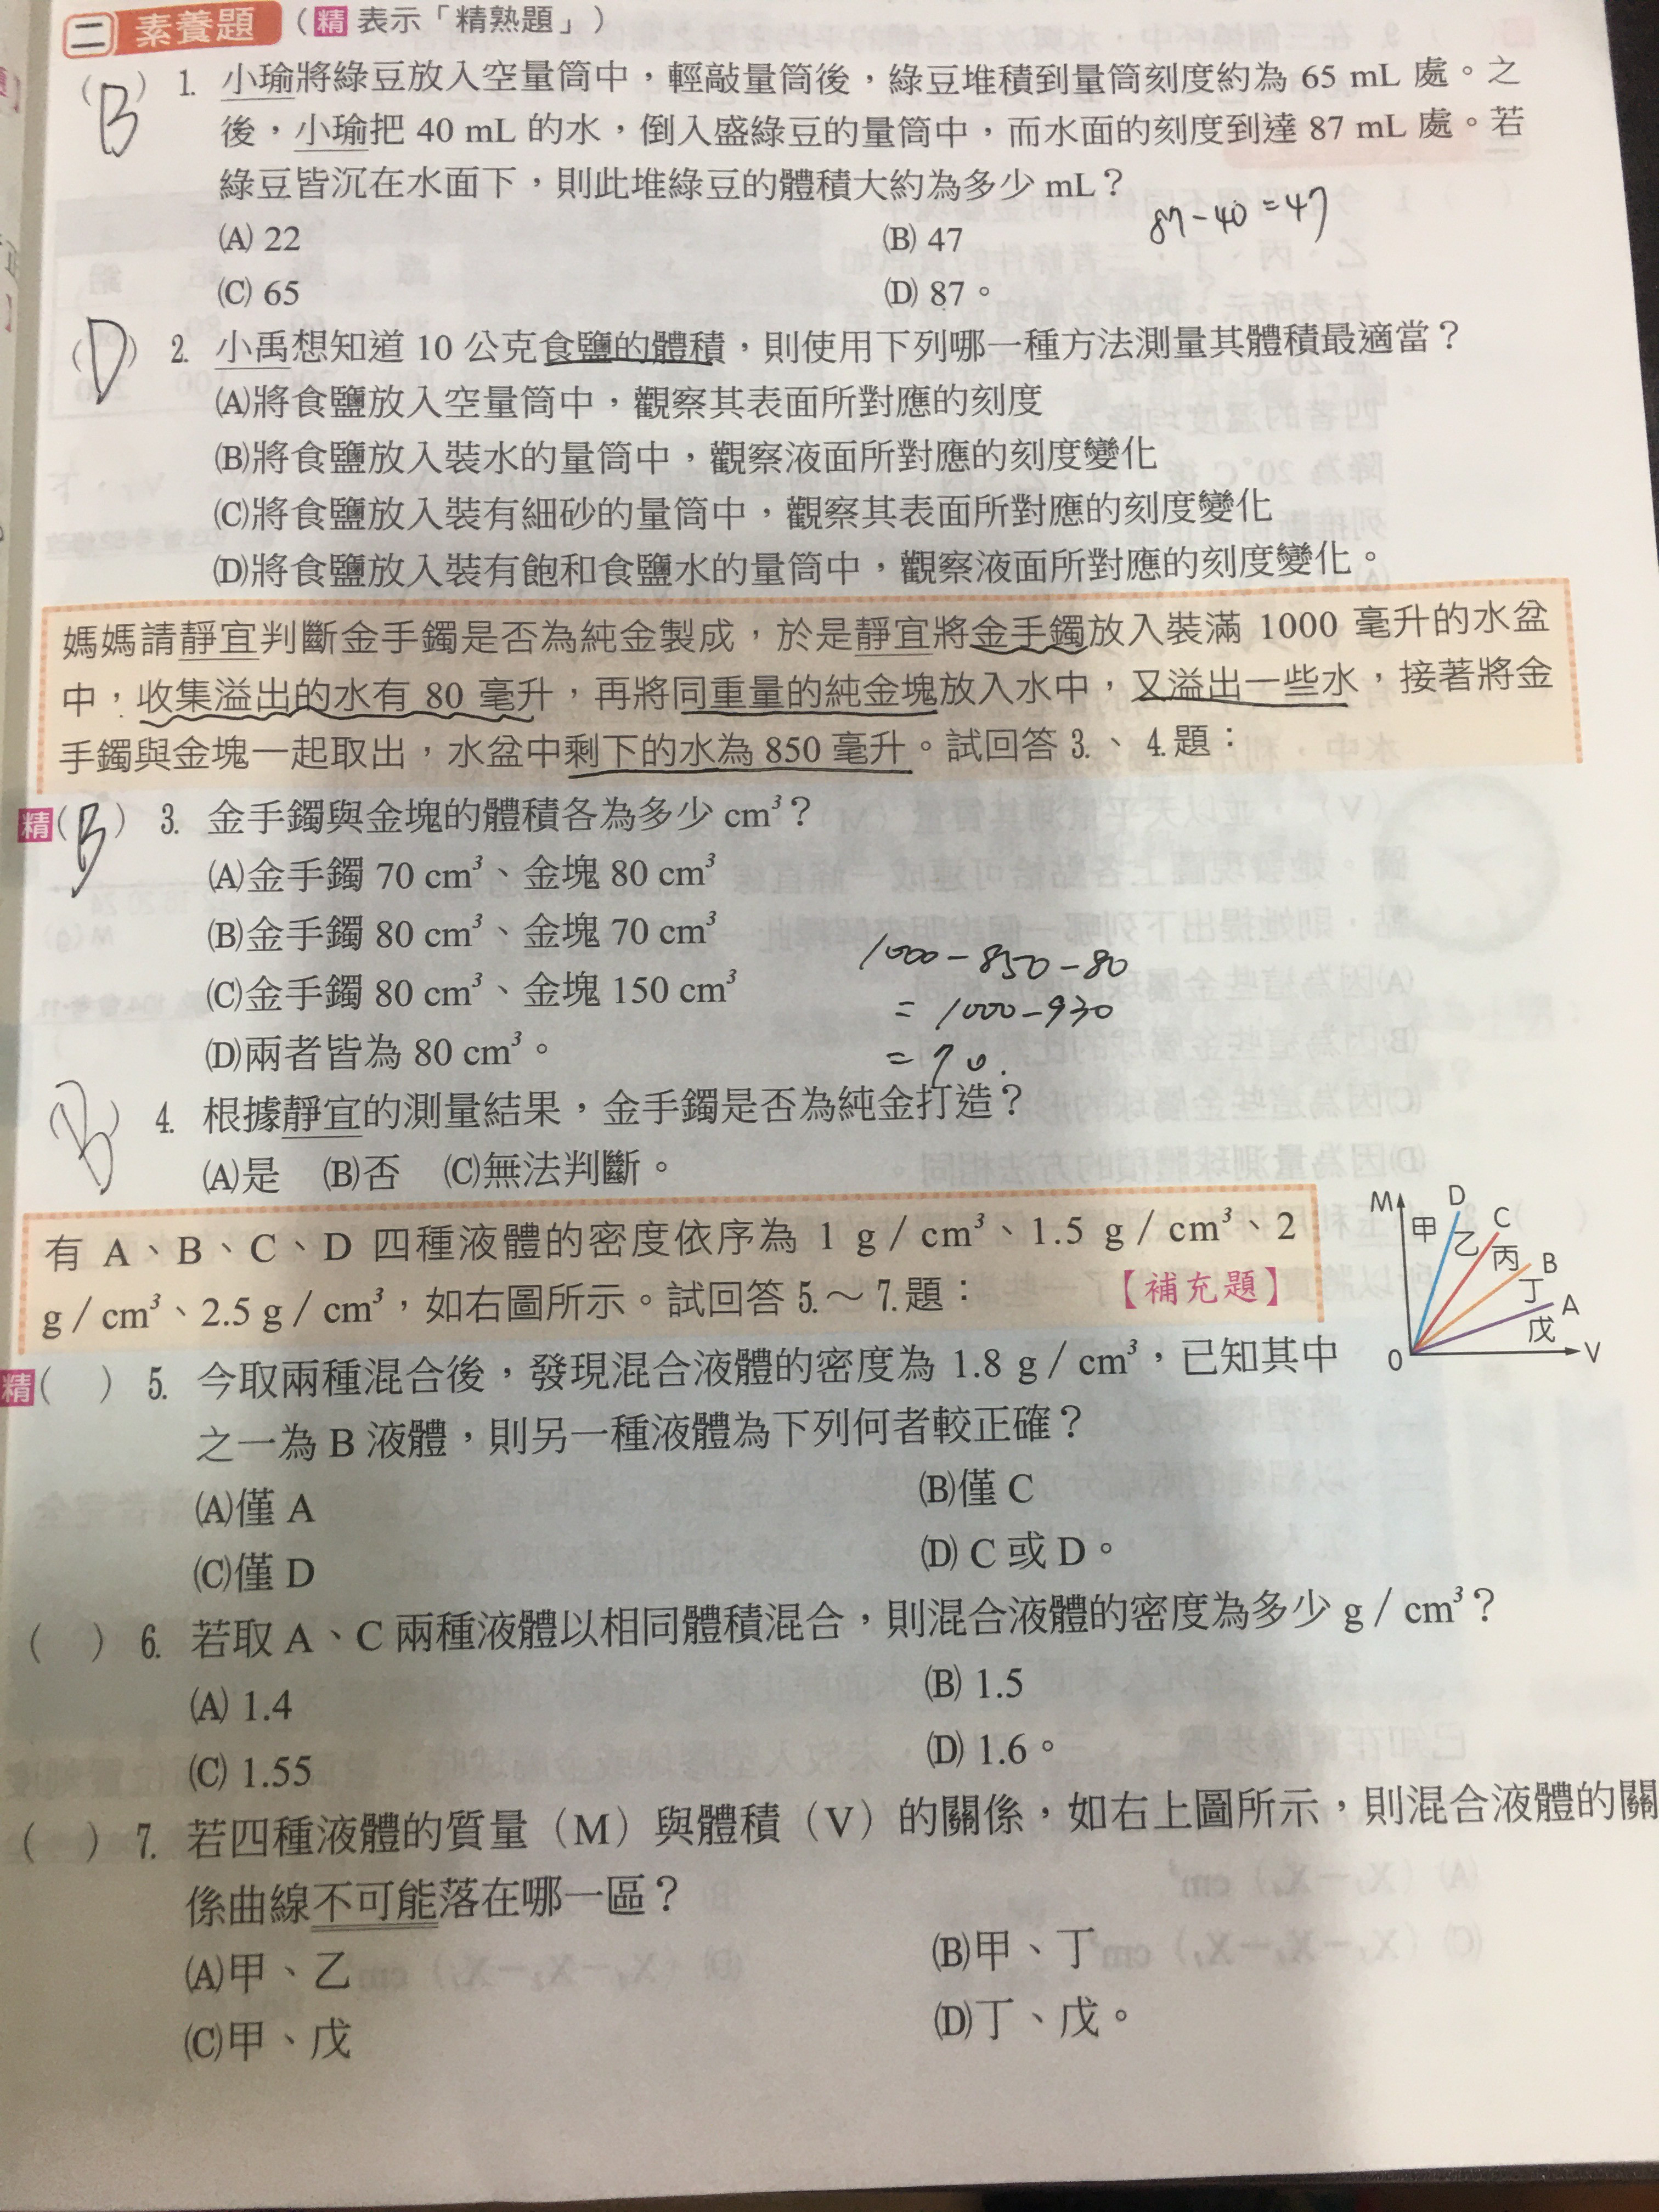 二 素養題 (精 表示「精熟題」)
(B) 1. 小瑜將綠豆放入空量筒中，輕敲量筒後，綠豆堆積到量筒刻度約為 65 mL 處。之
後，小瑜把 40 mL 的水，倒入盛綠豆的量筒中，而水面的刻度到達 87 mL 處。若
綠豆皆沉在水面下，則此堆綠豆的體積大約為多少 mL？
87-40=47
(A) 22 (B) 47
(C) 65 (D) 87。
(D) 2. 小禹想知道 10 公克食鹽的體積，則使用下列哪一種方法測量其體積最適當？
(A)將食鹽放入空量筒中，觀察其表面所對應的刻度
(B)將食鹽放入裝水的量筒中，觀察液面所對應的刻度變化
(C)將食鹽放入裝有細砂的量筒中，觀察其表面所對應的刻度變化
(D)將食鹽放入裝有飽和食鹽水的量筒中，觀察液面所對應的刻度變化。
媽媽請靜宜判斷金手鐲是否為純金製成，於是靜宜將金手鐲放入裝滿 1000 毫升的水盆
中，收集溢出的水有 80 毫升，再將同重量的純金塊放入水中，又溢出一些水，接著將金
手鐲與金塊一起取出，水盆中剩下的水為 850 毫升。試回答 3.、4.題：
精(B) 3. 金手鐲與金塊的體積各為多少 cm³？
(A)金手鐲 70 cm³、金塊 80 cm³
(B)金手鐲 80 cm³、金塊 70 cm³
(C)金手鐲 80 cm³、金塊 150 cm³
(D)兩者皆為 80 cm³。
1000-850-80
=1000-930
=70.
(B) 4. 根據靜宜的測量結果，金手鐲是否為純金打造？
(A)是 (B)否 (C)無法判斷。
有 A、B、C、D 四種液體的密度依序為 1 g / cm³、1.5 g / cm³、2
g / cm³、2.5 g / cm³，如右圖所示。試回答 5.～7.題： 【補充題】
M D C B A
甲 乙 丙 丁 戊
0 V
精( ) 5. 今取兩種混合後，發現混合液體的密度為 1.8 g / cm³，已知其中
之一為 B 液體，則另一種液體為下列何者較正確？
(A)僅 A (B)僅 C
(C)僅 D (D) C 或 D。
( ) 6. 若取 A、C 兩種液體以相同體積混合，則混合液體的密度為多少 g / cm³？
(A) 1.4 (B) 1.5
(C) 1.55 (D) 1.6。
( ) 7. 若四種液體的質量（M）與體積（V）的關係，如右上圖所示，則混合液體的關
係曲線不可能落在哪一區？
(A)甲、乙 (B)甲、丁
(C)甲、戊 (D)丁、戊。